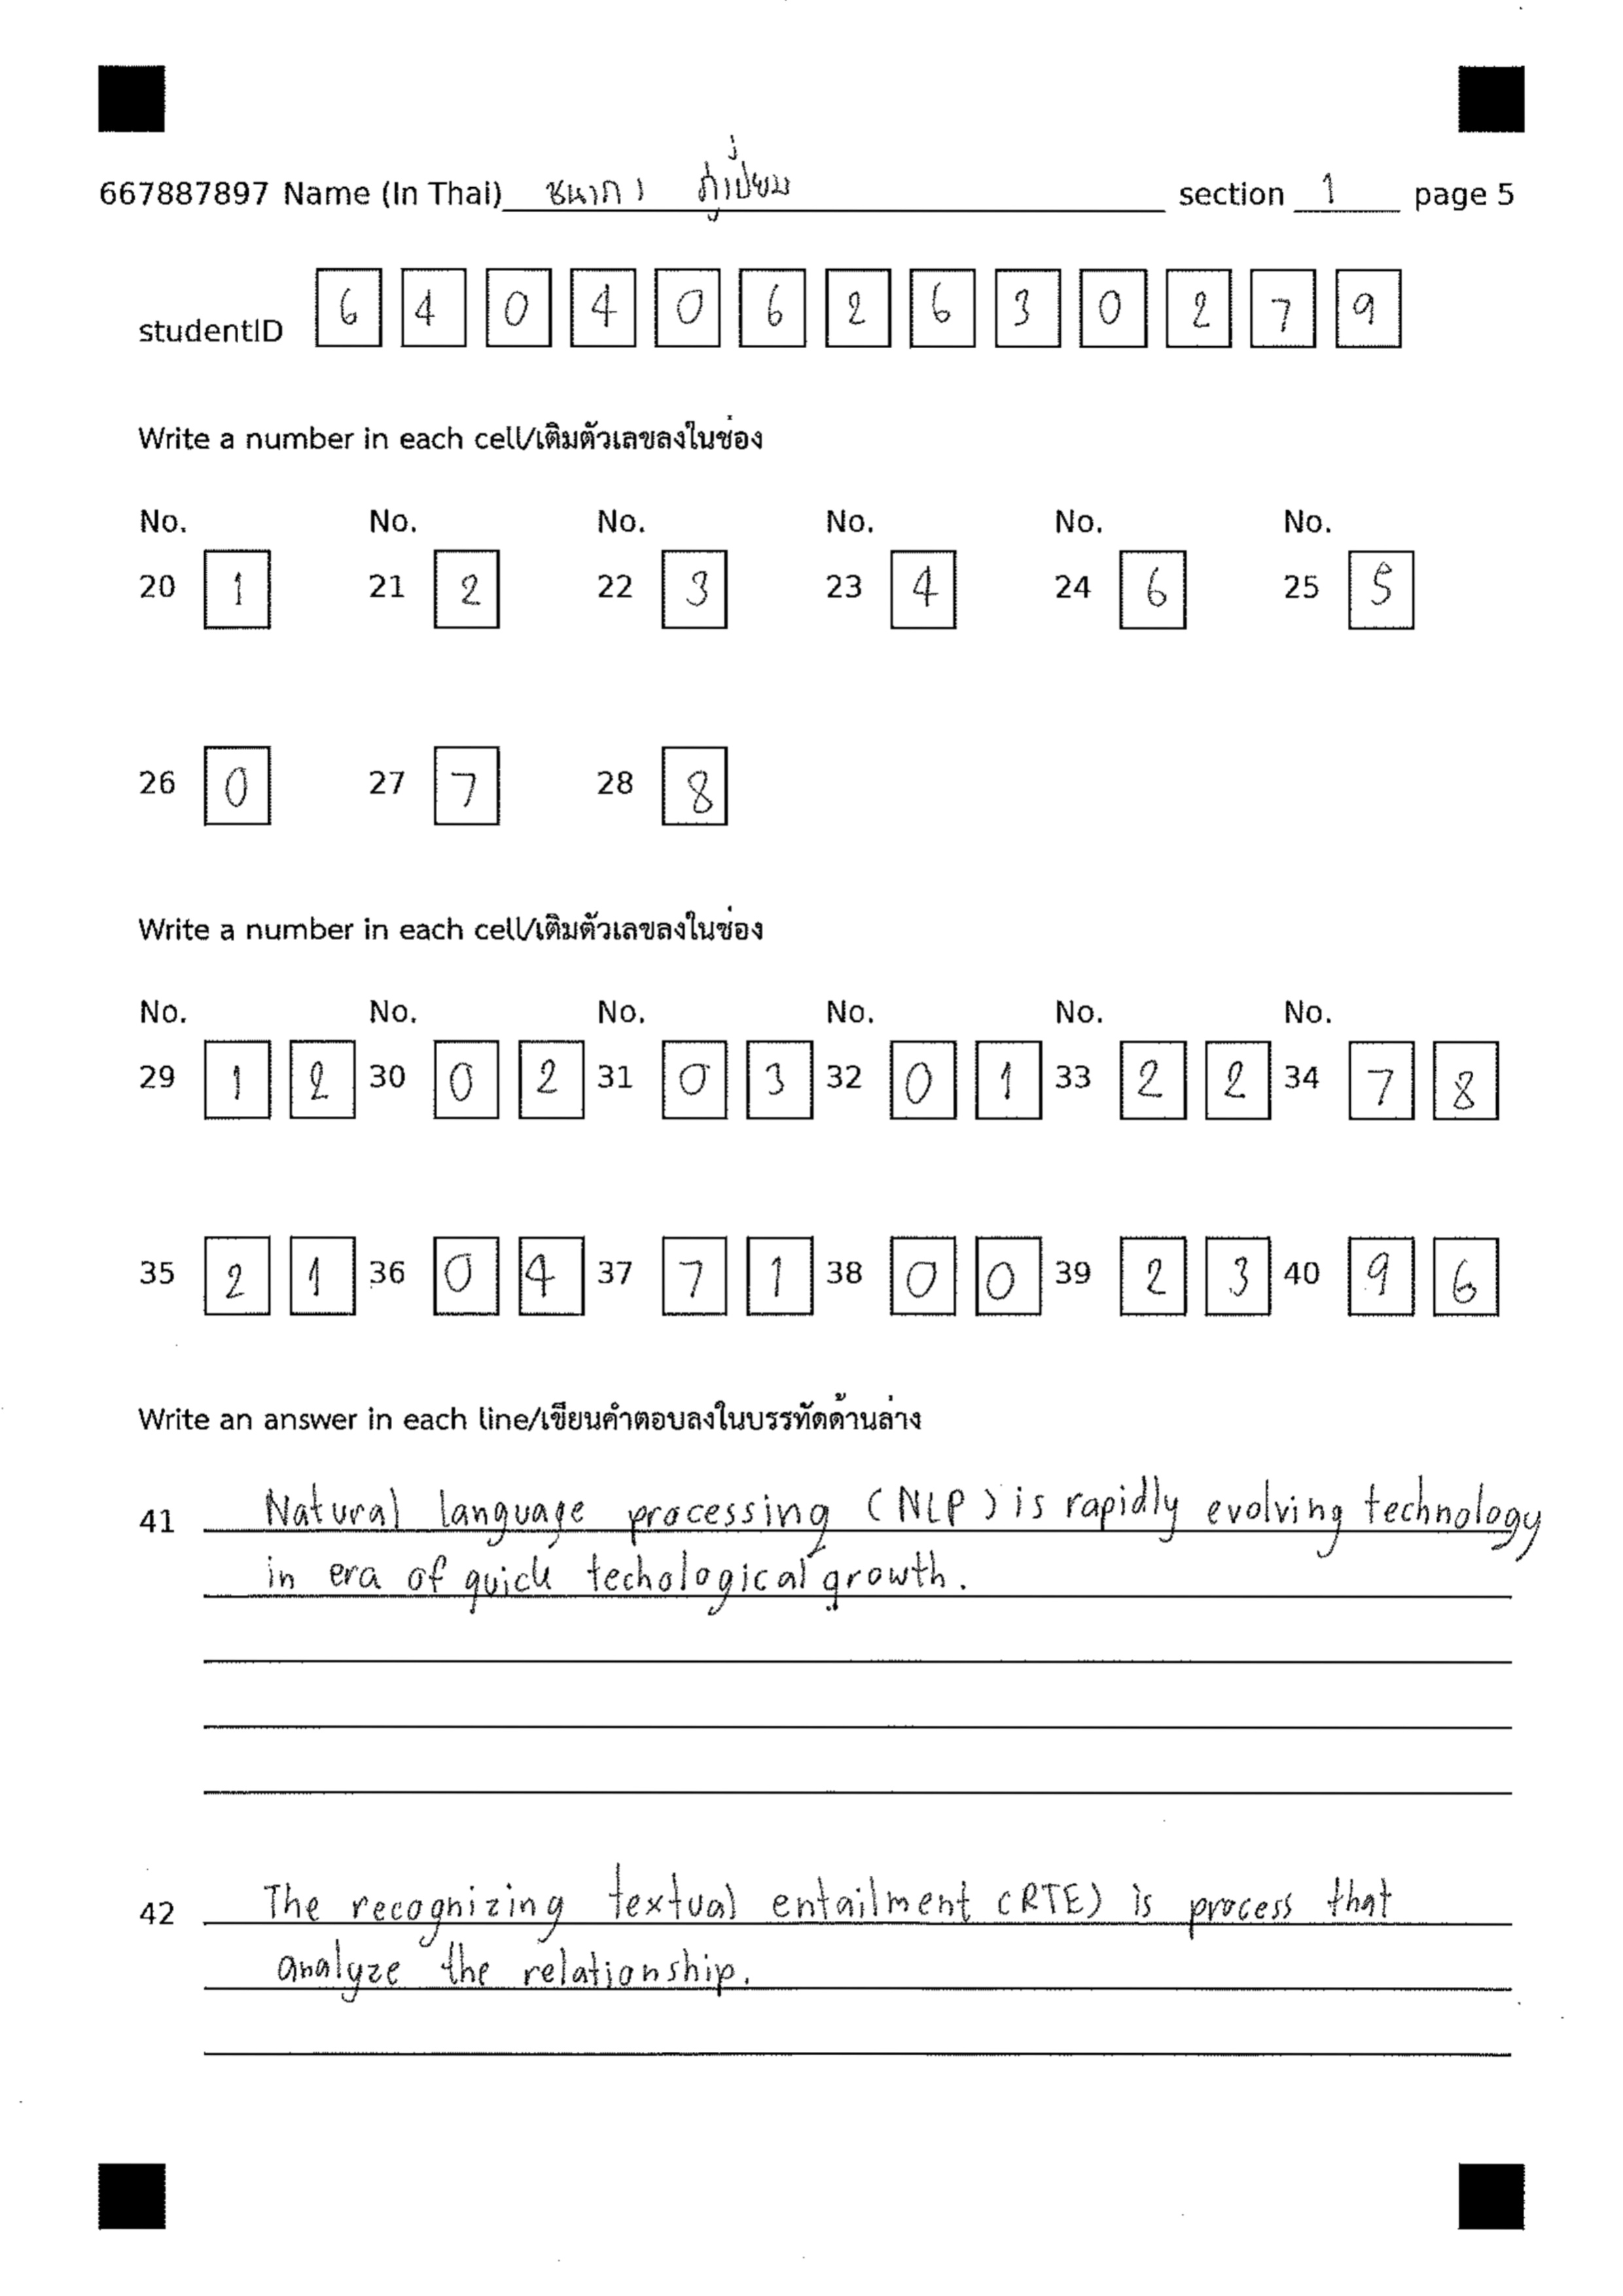 667887897 Name (In Thai) ชนาภา ภู่เปี่ยม section 1 page 5
studentID 6 4 0 4 0 6 2 6 3 0 2 7 9
Write a number in each cell/เติมตัวเลขลงในช่อง
No. No. No. No. No. No.
20 1 21 2 22 3 23 4 24 6 25 5
26 0 27 7 28 8
Write a number in each cell/เติมตัวเลขลงในช่อง
No. No. No. No. No. No.
29 1 2 30 0 2 31 0 3 32 0 1 33 2 2 34 7 8
35 2 1 36 0 4 37 7 1 38 0 0 39 2 3 40 9 6
Write an answer in each line/เขียนคำตอบลงในบรรทัดด้านล่าง
41 Natural language processing (NLP) is rapidly evolving technology
in era of quick techological growth.
42 The recognizing textual entailment (RTE) is process that
analyze the relationship.